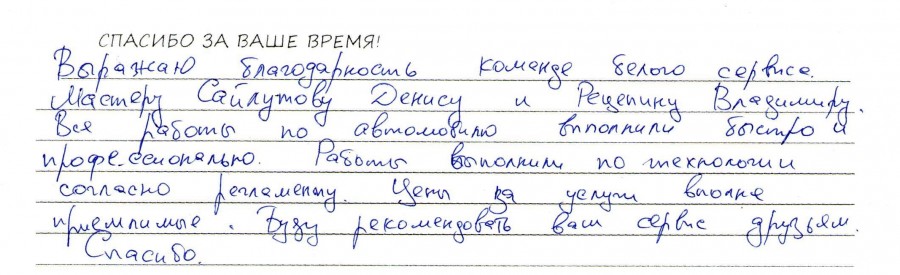 СПАСИБО ЗА ВАШЕ ВРЕМЯ!
Выражаю благодарность команде белого сервиса.
Мастеру Сайлутову Денису и Рецепину Владимиру.
Все работы по автомобилю вполнили быстро и
професионально. Работы выполнили по технологии
согласно регламенту. Цены за услуги вполне
приемлимые. Буду рекомендовать ваш сервис друзьям.
Спасибо.